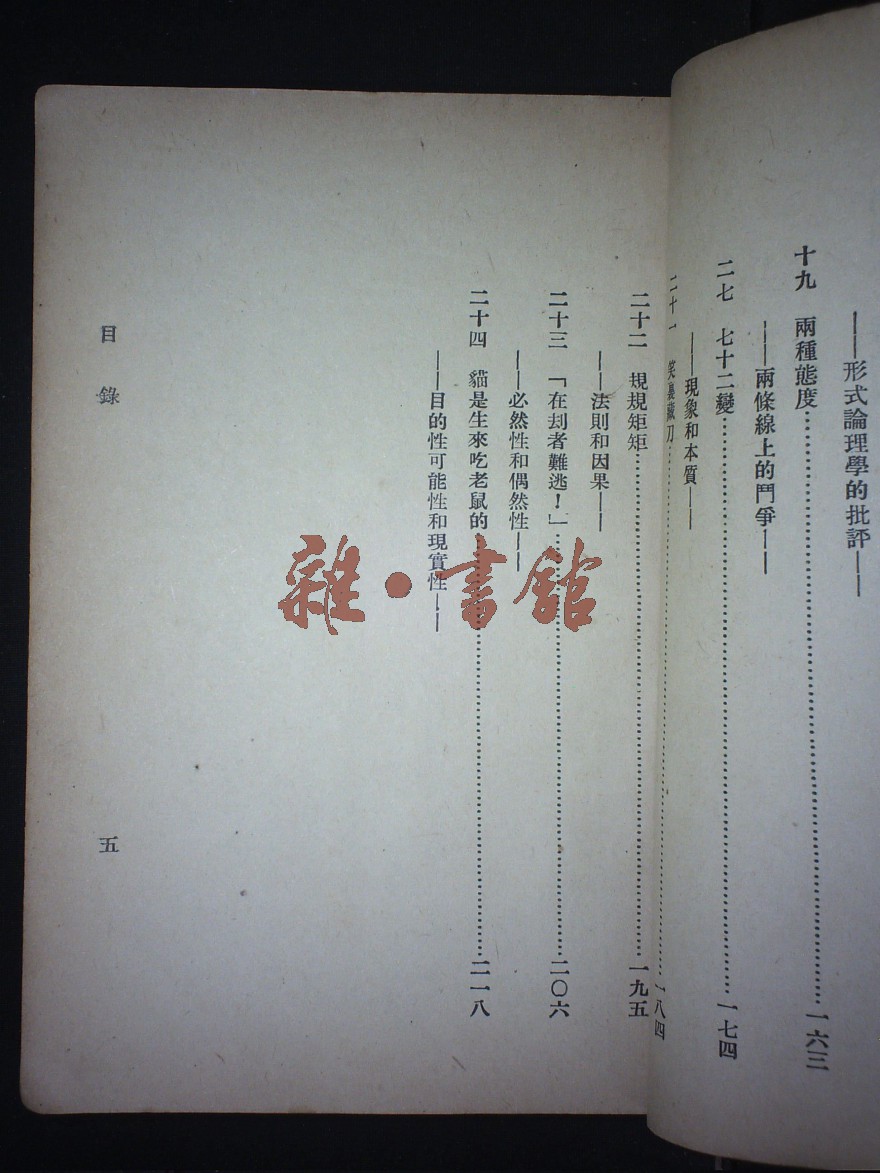 ——形式論理學的批評——
十九　兩種態度……一六三
——兩條線上的鬥爭——
二七　七十二變……一七四
——現象和本質——
二十一　笑裏藏刀……一八四
二十二　規規矩矩……一九五
——法則和因果——
二十三　「在刦者難逃！」……二〇六
——必然性和偶然性——
二十四　貓是生來吃老鼠的……二一八
——目的性可能性和現實性——
目錄
五
雜·書館